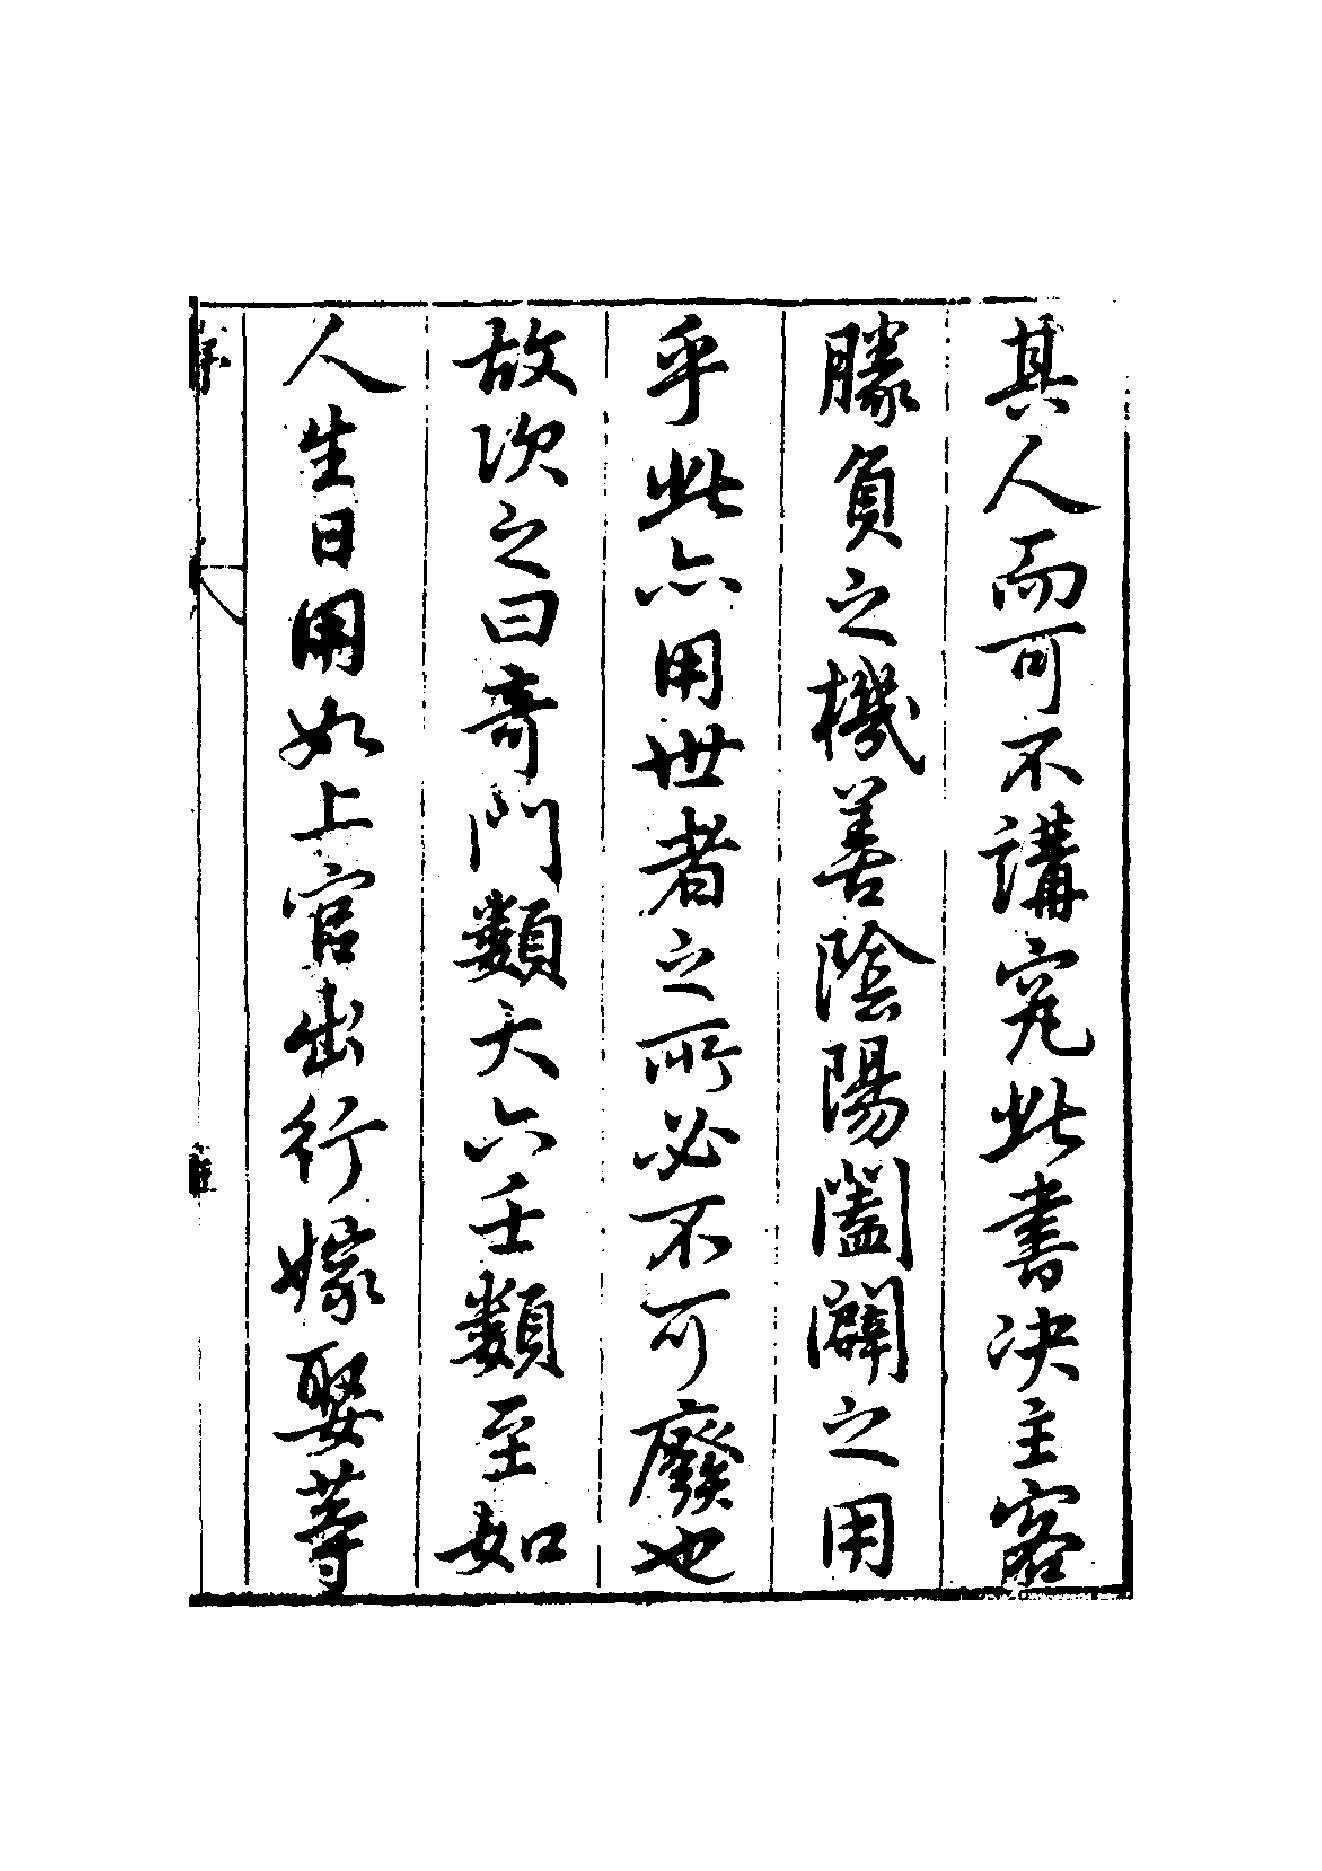 其人而可不講究此書决主客
勝負之機善陰陽闔闢之用
乎此亦用世者之所必不可廢也
故次之曰奇門類大六壬類至如
人生日用如上官出行嫁娶等
序